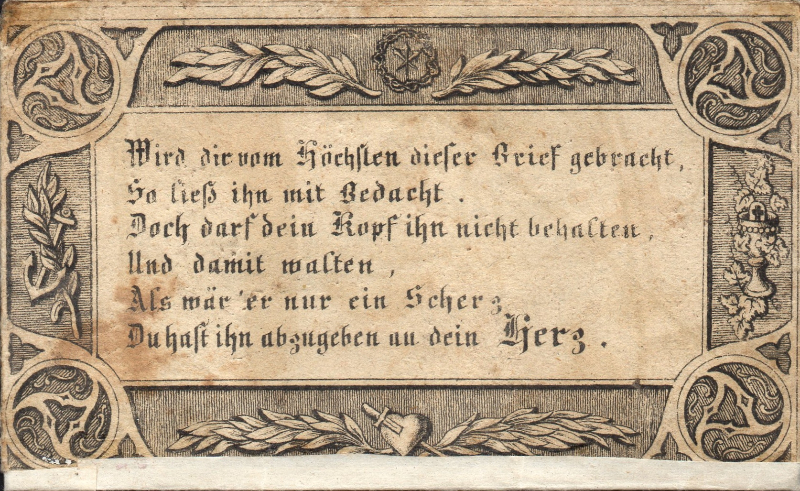 Wird dir vom Höchsten dieser Brief gebracht,
So ließ ihn mit Bedacht.
Doch darf dein Kopf ihn nicht behalten,
Und damit walten,
Als wär 'er nur ein Scherz
Du hast ihn abzugeben an dein Herz.